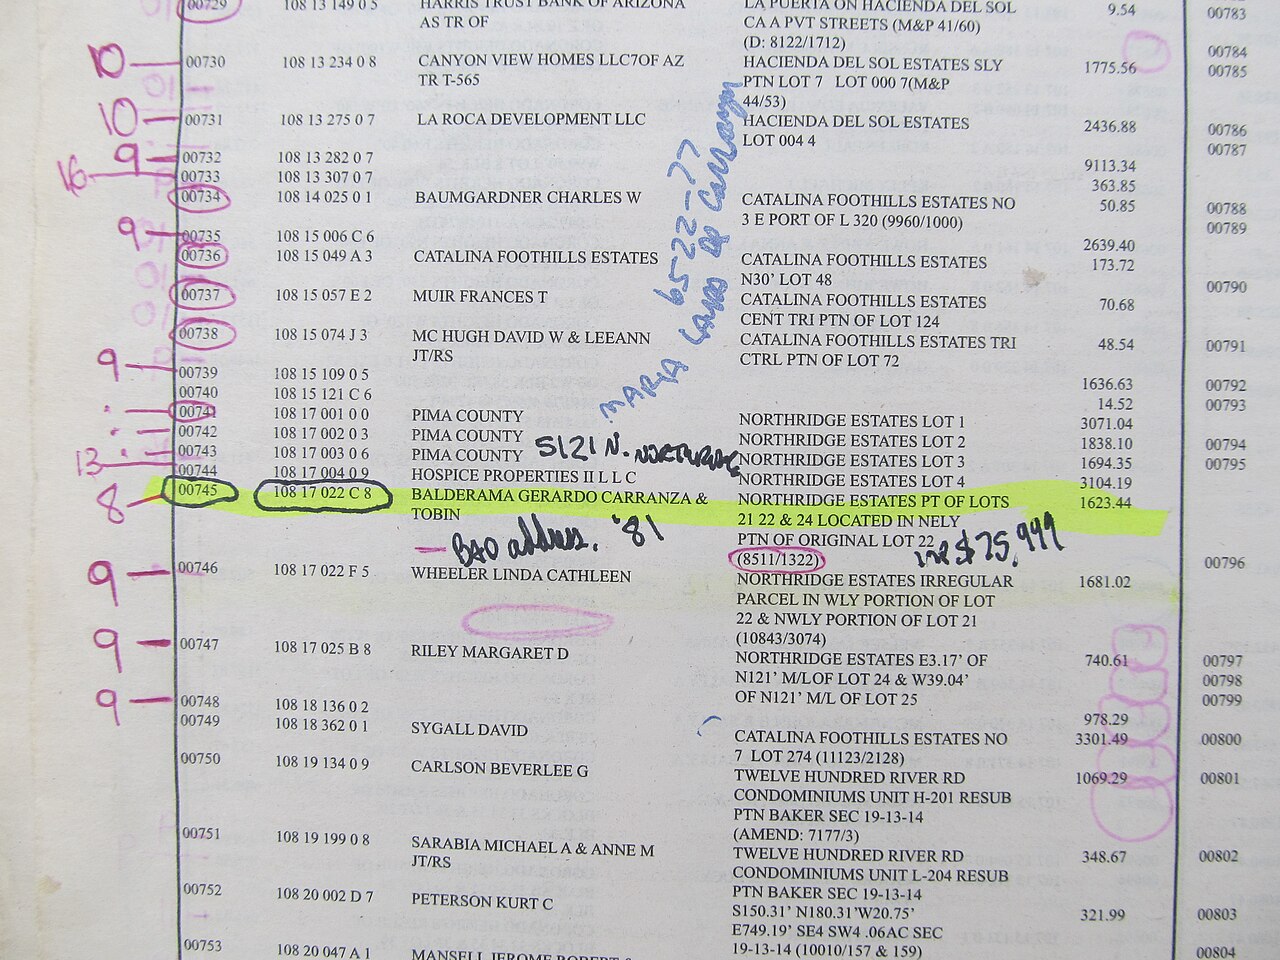 00729 108 13 149 0 5 HARRIS TRUST BANK OF ARIZONA LA PUERTA ON HACIENDA DEL SOL 9.54 00783
AS TR OF CA A PVT STREETS (M&P 41/60)
(D: 8122/1712) 00784
10 00730 108 13 234 0 8 CANYON VIEW HOMES LLC7OF AZ HACIENDA DEL SOL ESTATES SLY 1775.56 00785
TR T-565 PTN LOT 7 LOT 000 7(M&P
44/53)
10 00731 108 13 275 0 7 LA ROCA DEVELOPMENT LLC HACIENDA DEL SOL ESTATES 2436.88 00786
LOT 004 4 00787
9 00732 108 13 282 0 7 9113.34
16 00733 108 13 307 0 7 363.85
00734 108 14 025 0 1 BAUMGARDNER CHARLES W CATALINA FOOTHILLS ESTATES NO 50.85 00788
3 E PORT OF L 320 (9960/1000) 00789
9 00735 108 15 006 C 6 2639.40
00736 108 15 049 A 3 CATALINA FOOTHILLS ESTATES CATALINA FOOTHILLS ESTATES 173.72
N30' LOT 48 00790
00737 108 15 057 E 2 MUIR FRANCES T CATALINA FOOTHILLS ESTATES 70.68
CENT TRI PTN OF LOT 124
00738 108 15 074 J 3 MC HUGH DAVID W & LEEANN CATALINA FOOTHILLS ESTATES TRI 48.54 00791
JT/RS CTRL PTN OF LOT 72
9 00739 108 15 109 0 5 1636.63 00792
00740 108 15 121 C 6 14.52 00793
00741 108 17 001 0 0 PIMA COUNTY NORTHRIDGE ESTATES LOT 1 3071.04
00742 108 17 002 0 3 PIMA COUNTY NORTHRIDGE ESTATES LOT 2 1838.10 00794
00743 108 17 003 0 6 PIMA COUNTY NORTHRIDGE ESTATES LOT 3 1694.35 00795
13 00744 108 17 004 0 9 HOSPICE PROPERTIES II L L C NORTHRIDGE ESTATES LOT 4 3104.19
8 00745 108 17 022 C 8 BALDERAMA GERARDO CARRANZA & NORTHRIDGE ESTATES PT OF LOTS 1623.44
TOBIN 21 22 & 24 LOCATED IN NELY
PTN OF ORIGINAL LOT 22
(8511/1322) 00796
6522-77
MARIA DE Carranza
5121 N. NORTHRIDGE
BAD address. '81
$75,999
9 00746 108 17 022 F 5 WHEELER LINDA CATHLEEN NORTHRIDGE ESTATES IRREGULAR 1681.02
PARCEL IN WLY PORTION OF LOT
22 & NWLY PORTION OF LOT 21
(10843/3074)
9 00747 108 17 025 B 8 RILEY MARGARET D NORTHRIDGE ESTATES E3.17' OF 740.61 00797
N121' M/LOF LOT 24 & W39.04' 00798
OF N121' M/L OF LOT 25 00799
9 00748 108 18 136 0 2 978.29
00749 108 18 362 0 1 SYGALL DAVID CATALINA FOOTHILLS ESTATES NO 3301.49 00800
7 LOT 274 (11123/2128)
00750 108 19 134 0 9 CARLSON BEVERLEE G TWELVE HUNDRED RIVER RD 1069.29 00801
CONDOMINIUMS UNIT H-201 RESUB
PTN BAKER SEC 19-13-14
(AMEND: 7177/3)
00751 108 19 199 0 8 SARABIA MICHAEL A & ANNE M TWELVE HUNDRED RIVER RD 348.67 00802
JT/RS CONDOMINIUMS UNIT L-204 RESUB
PTN BAKER SEC 19-13-14
00752 108 20 002 D 7 PETERSON KURT C S150.31' N180.31'W20.75' 321.99 00803
E749.19' SE4 SW4 .06AC SEC
19-13-14 (10010/157 & 159)
00753 108 20 047 A 1 MANSELL JEROME ROBERT & 00804